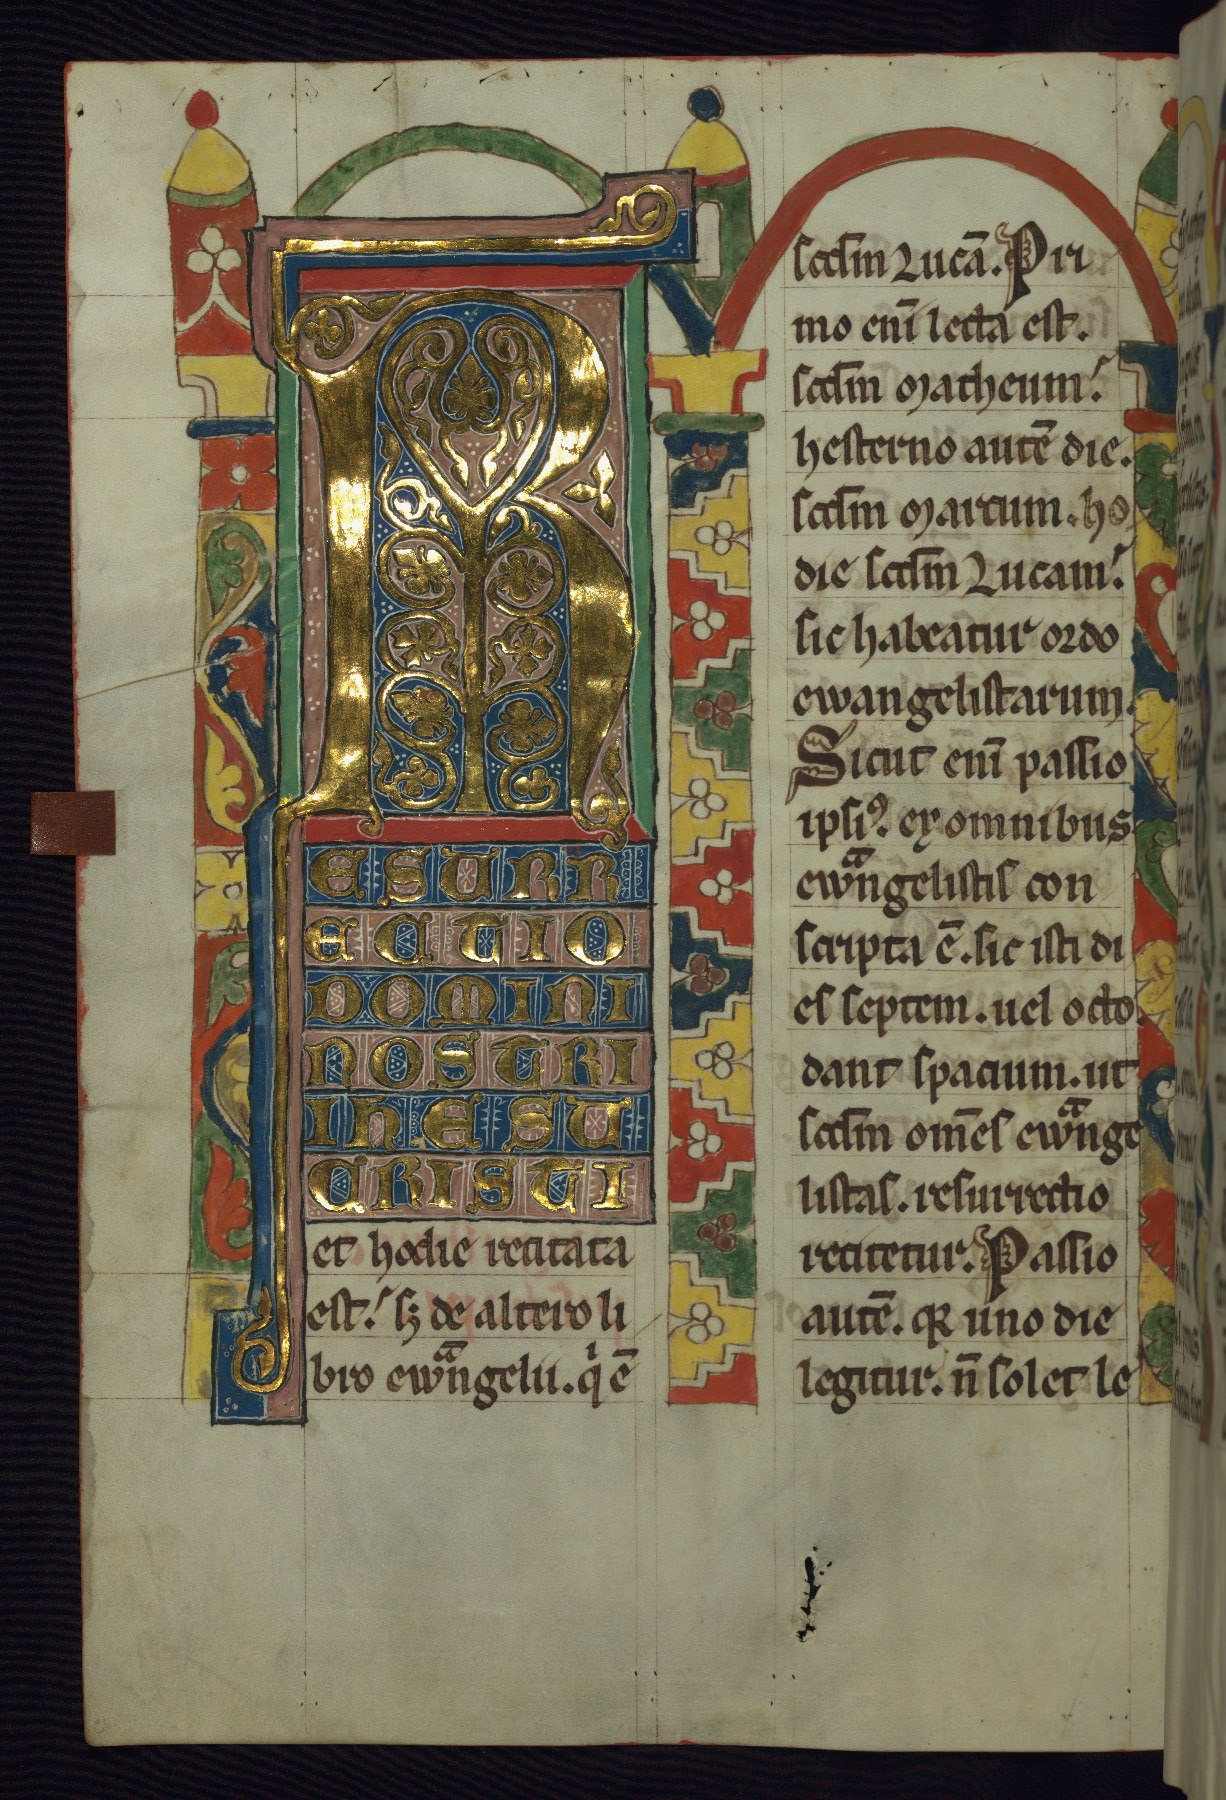 R
ESURR
ECTIO
DOMINI
NOSTRI
IHESU
CRISTI
et hodie recitata
est. sꝫ de altero li
bro ewãngelii. q̇ ẽ
scd̄m Lucā. Pri
mo enī lecta est.
scd̄m Matheum.
hesterno autē die.
scd̄m Marcum. ho
die scd̄m Lucam.
sic habeatur ordo
ewangelistarum.
Sicut enī passio
ipsiꝰ. ex omnibus
ewãngelistis con
scripta ē. sic isti di
es septem. uel octo.
dant spacium. ut
scd̄m om̄es ewãnge
listas. resurrectio
recitetur. Passio
autē. qꝛ uno die
legitur. n̄ solet le